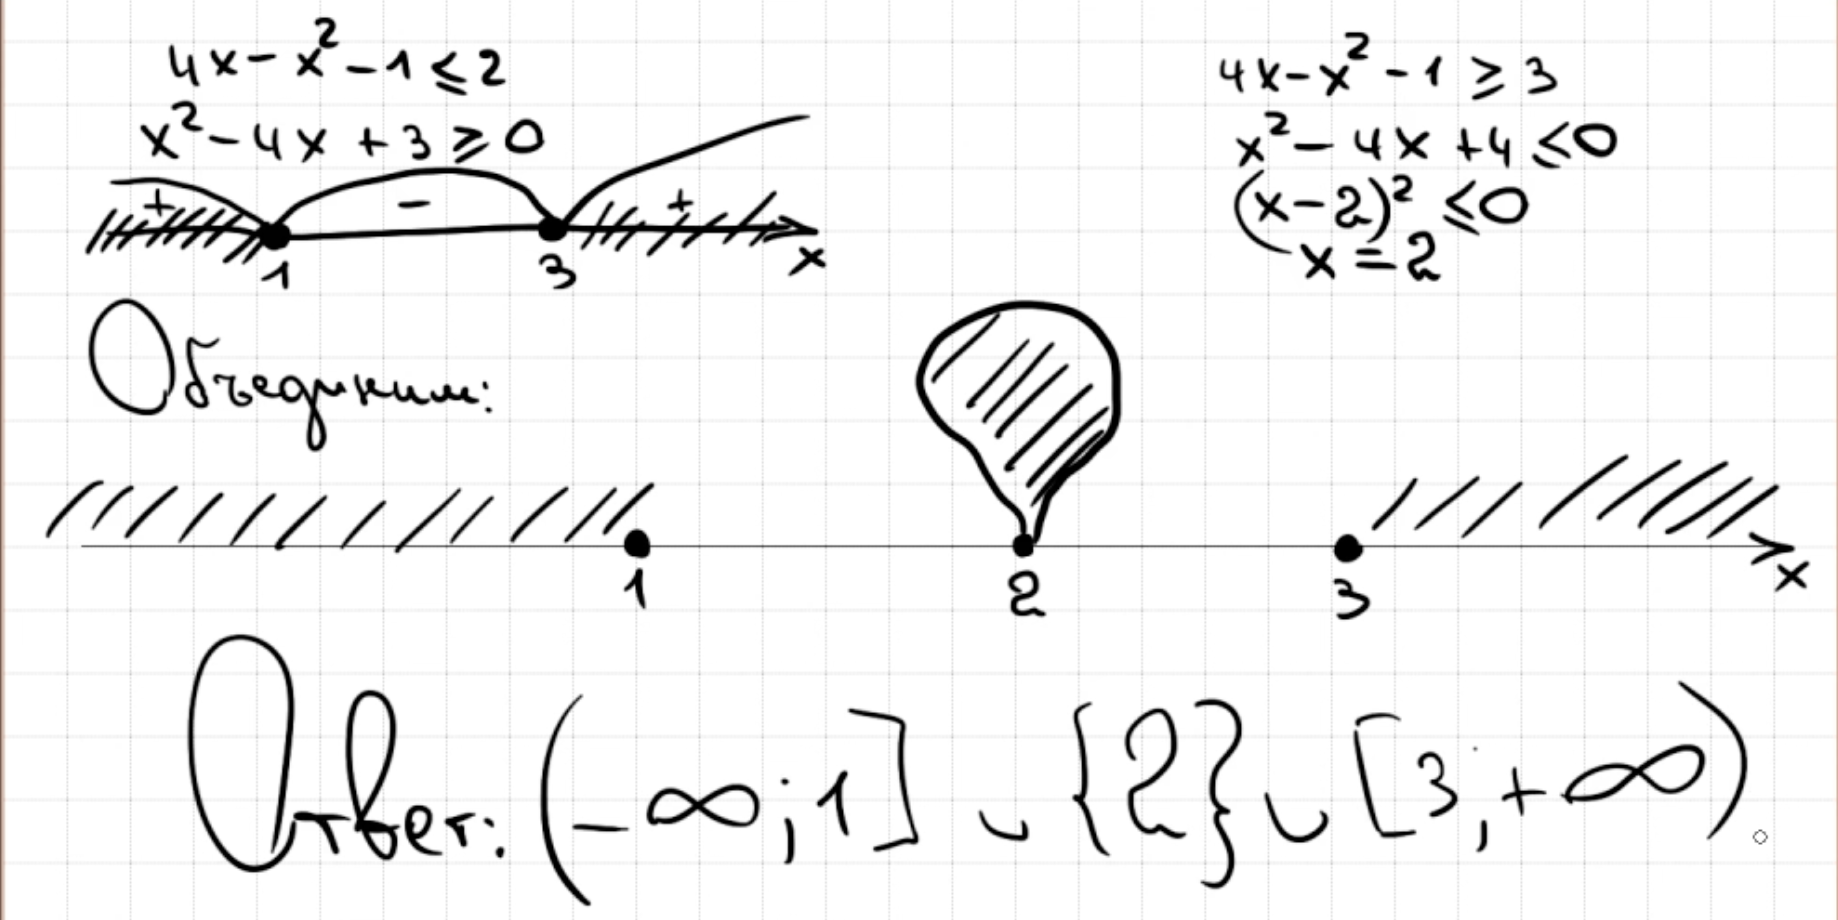 4x - x² - 1 ≤ 2
x² - 4x + 3 ≥ 0
+ - +
1 3 x
4x - x² - 1 ≥ 3
x² - 4x + 4 ≤ 0
(x - 2)² ≤ 0
x = 2
Объединим:
1 2 3 x
Ответ: (-∞; 1] ∪ {2} ∪ [3; +∞).